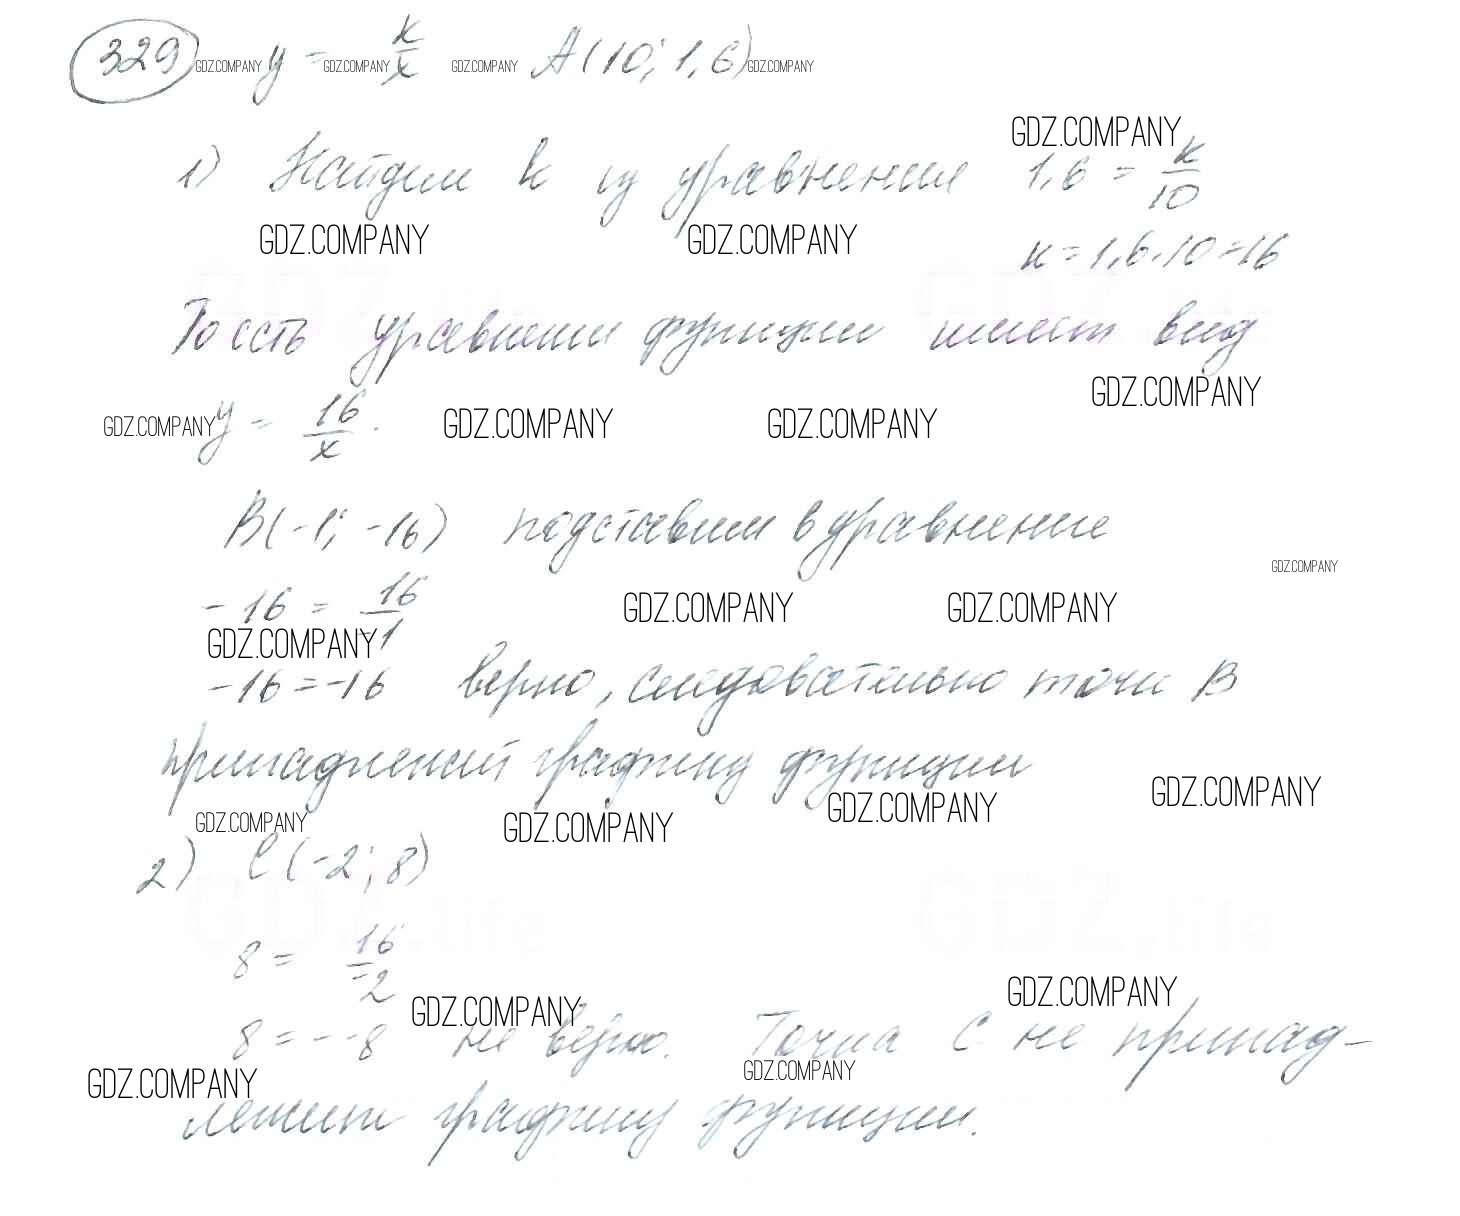 329 GDZ.COMPANY y = GDZ.COMPANY k/x GDZ.COMPANY A(10; 1,6) GDZ.COMPANY
GDZ.COMPANY
1) Найдем k из уравнения 1,6 = k/10
GDZ.COMPANY GDZ.COMPANY
k = 1,6 · 10 = 16
GDZ.life GDZ.life
То есть уравнение функции имеет вид
GDZ.COMPANY
GDZ.COMPANY y = 16/x . GDZ.COMPANY GDZ.COMPANY
B(-1; -16) подставим в уравнение
GDZ.COMPANY
-16 = 16/-1 GDZ.COMPANY GDZ.COMPANY
GDZ.COMPANY
-16 = -16 верно, следовательно точка B
принадлежит графику функции
GDZ.COMPANY GDZ.COMPANY GDZ.COMPANY GDZ.COMPANY
2) C(-2; 8)
GDZ.life GDZ.life
8 = 16/-2
GDZ.COMPANY GDZ.COMPANY
8 = --8 не верно. Точка C не принад-
GDZ.COMPANY GDZ.COMPANY
лежит графику функции.